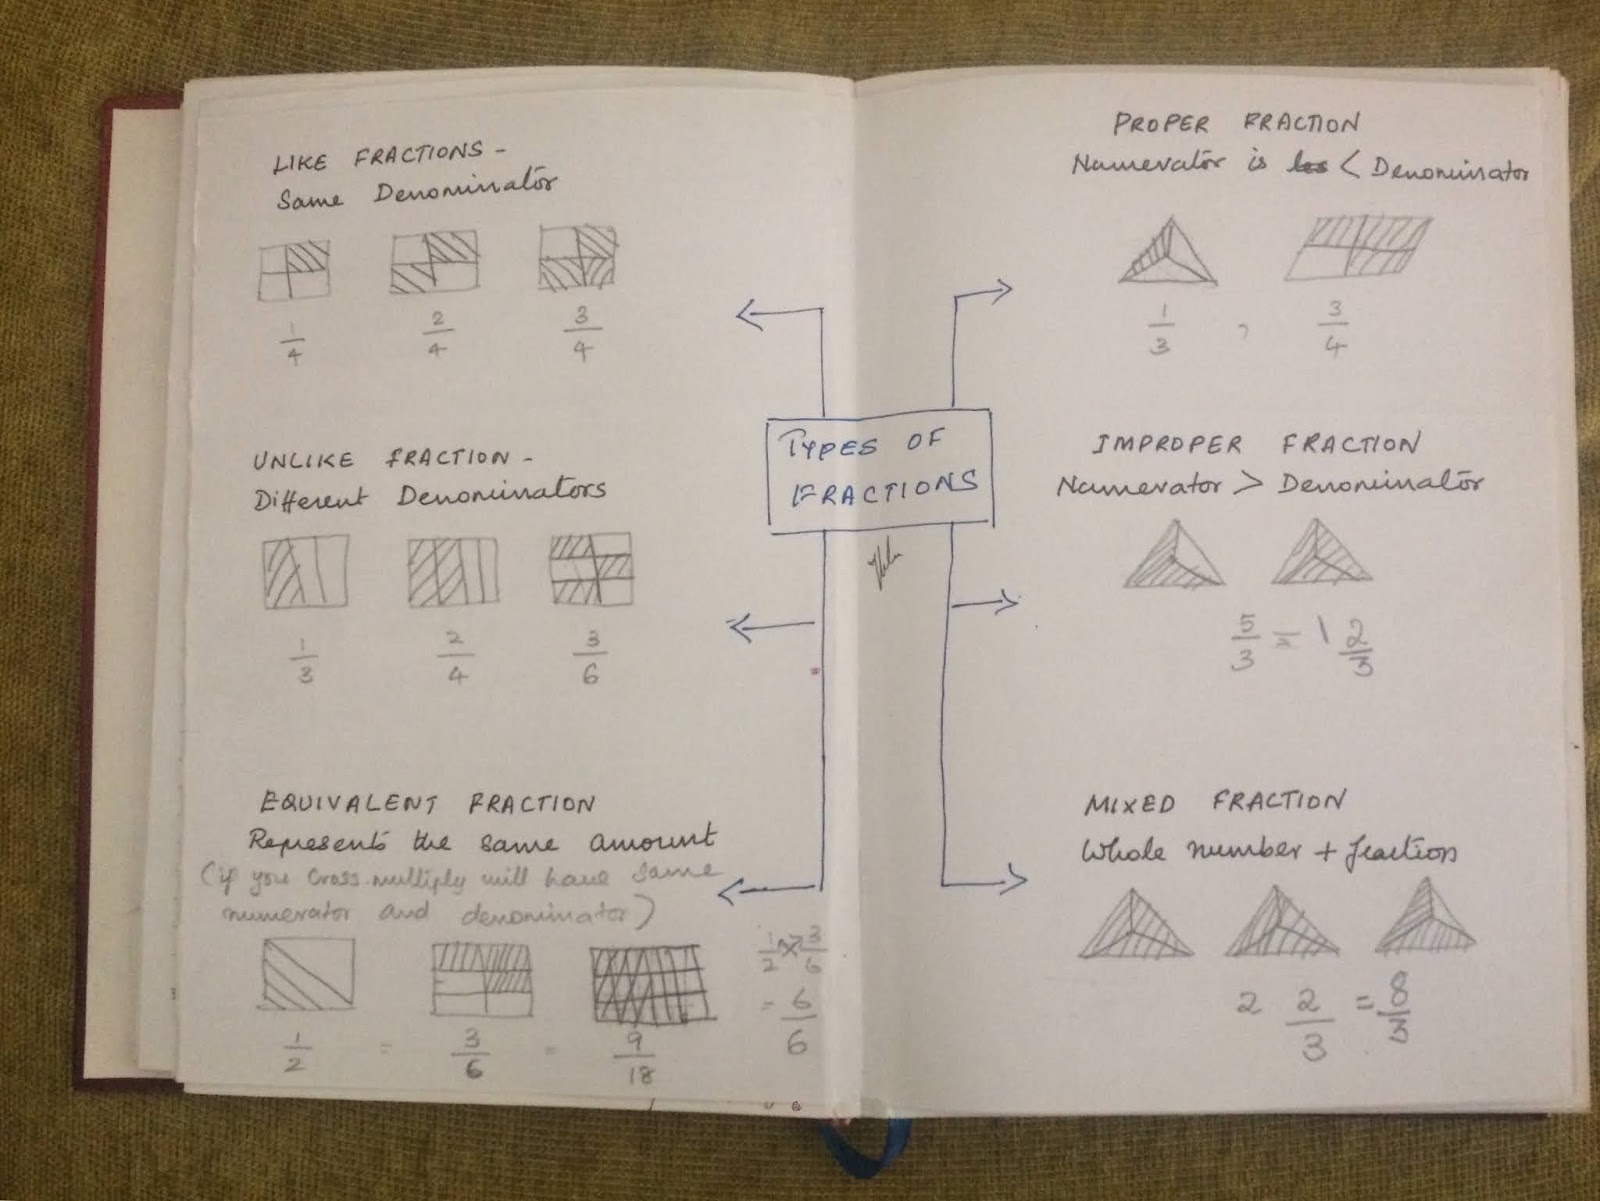 LIKE FRACTIONS -
Same Denominator
1/4 2/4 3/4
UNLIKE FRACTION -
Different Denominators
1/3 2/4 3/6
EQUIVALENT FRACTION
Represents the same amount
(if you cross multiply will have same
numerator and denominator)
1/2 = 3/6 = 9/18
1/2 × 3/6
= 6/6
TYPES OF
FRACTIONS
PROPER FRACTION
Numerator is < Denominator
1/3 , 3/4
IMPROPER FRACTION
Numerator > Denominator
5/3 = 1 2/3
MIXED FRACTION
Whole number + fraction
2 2/3 = 8/3